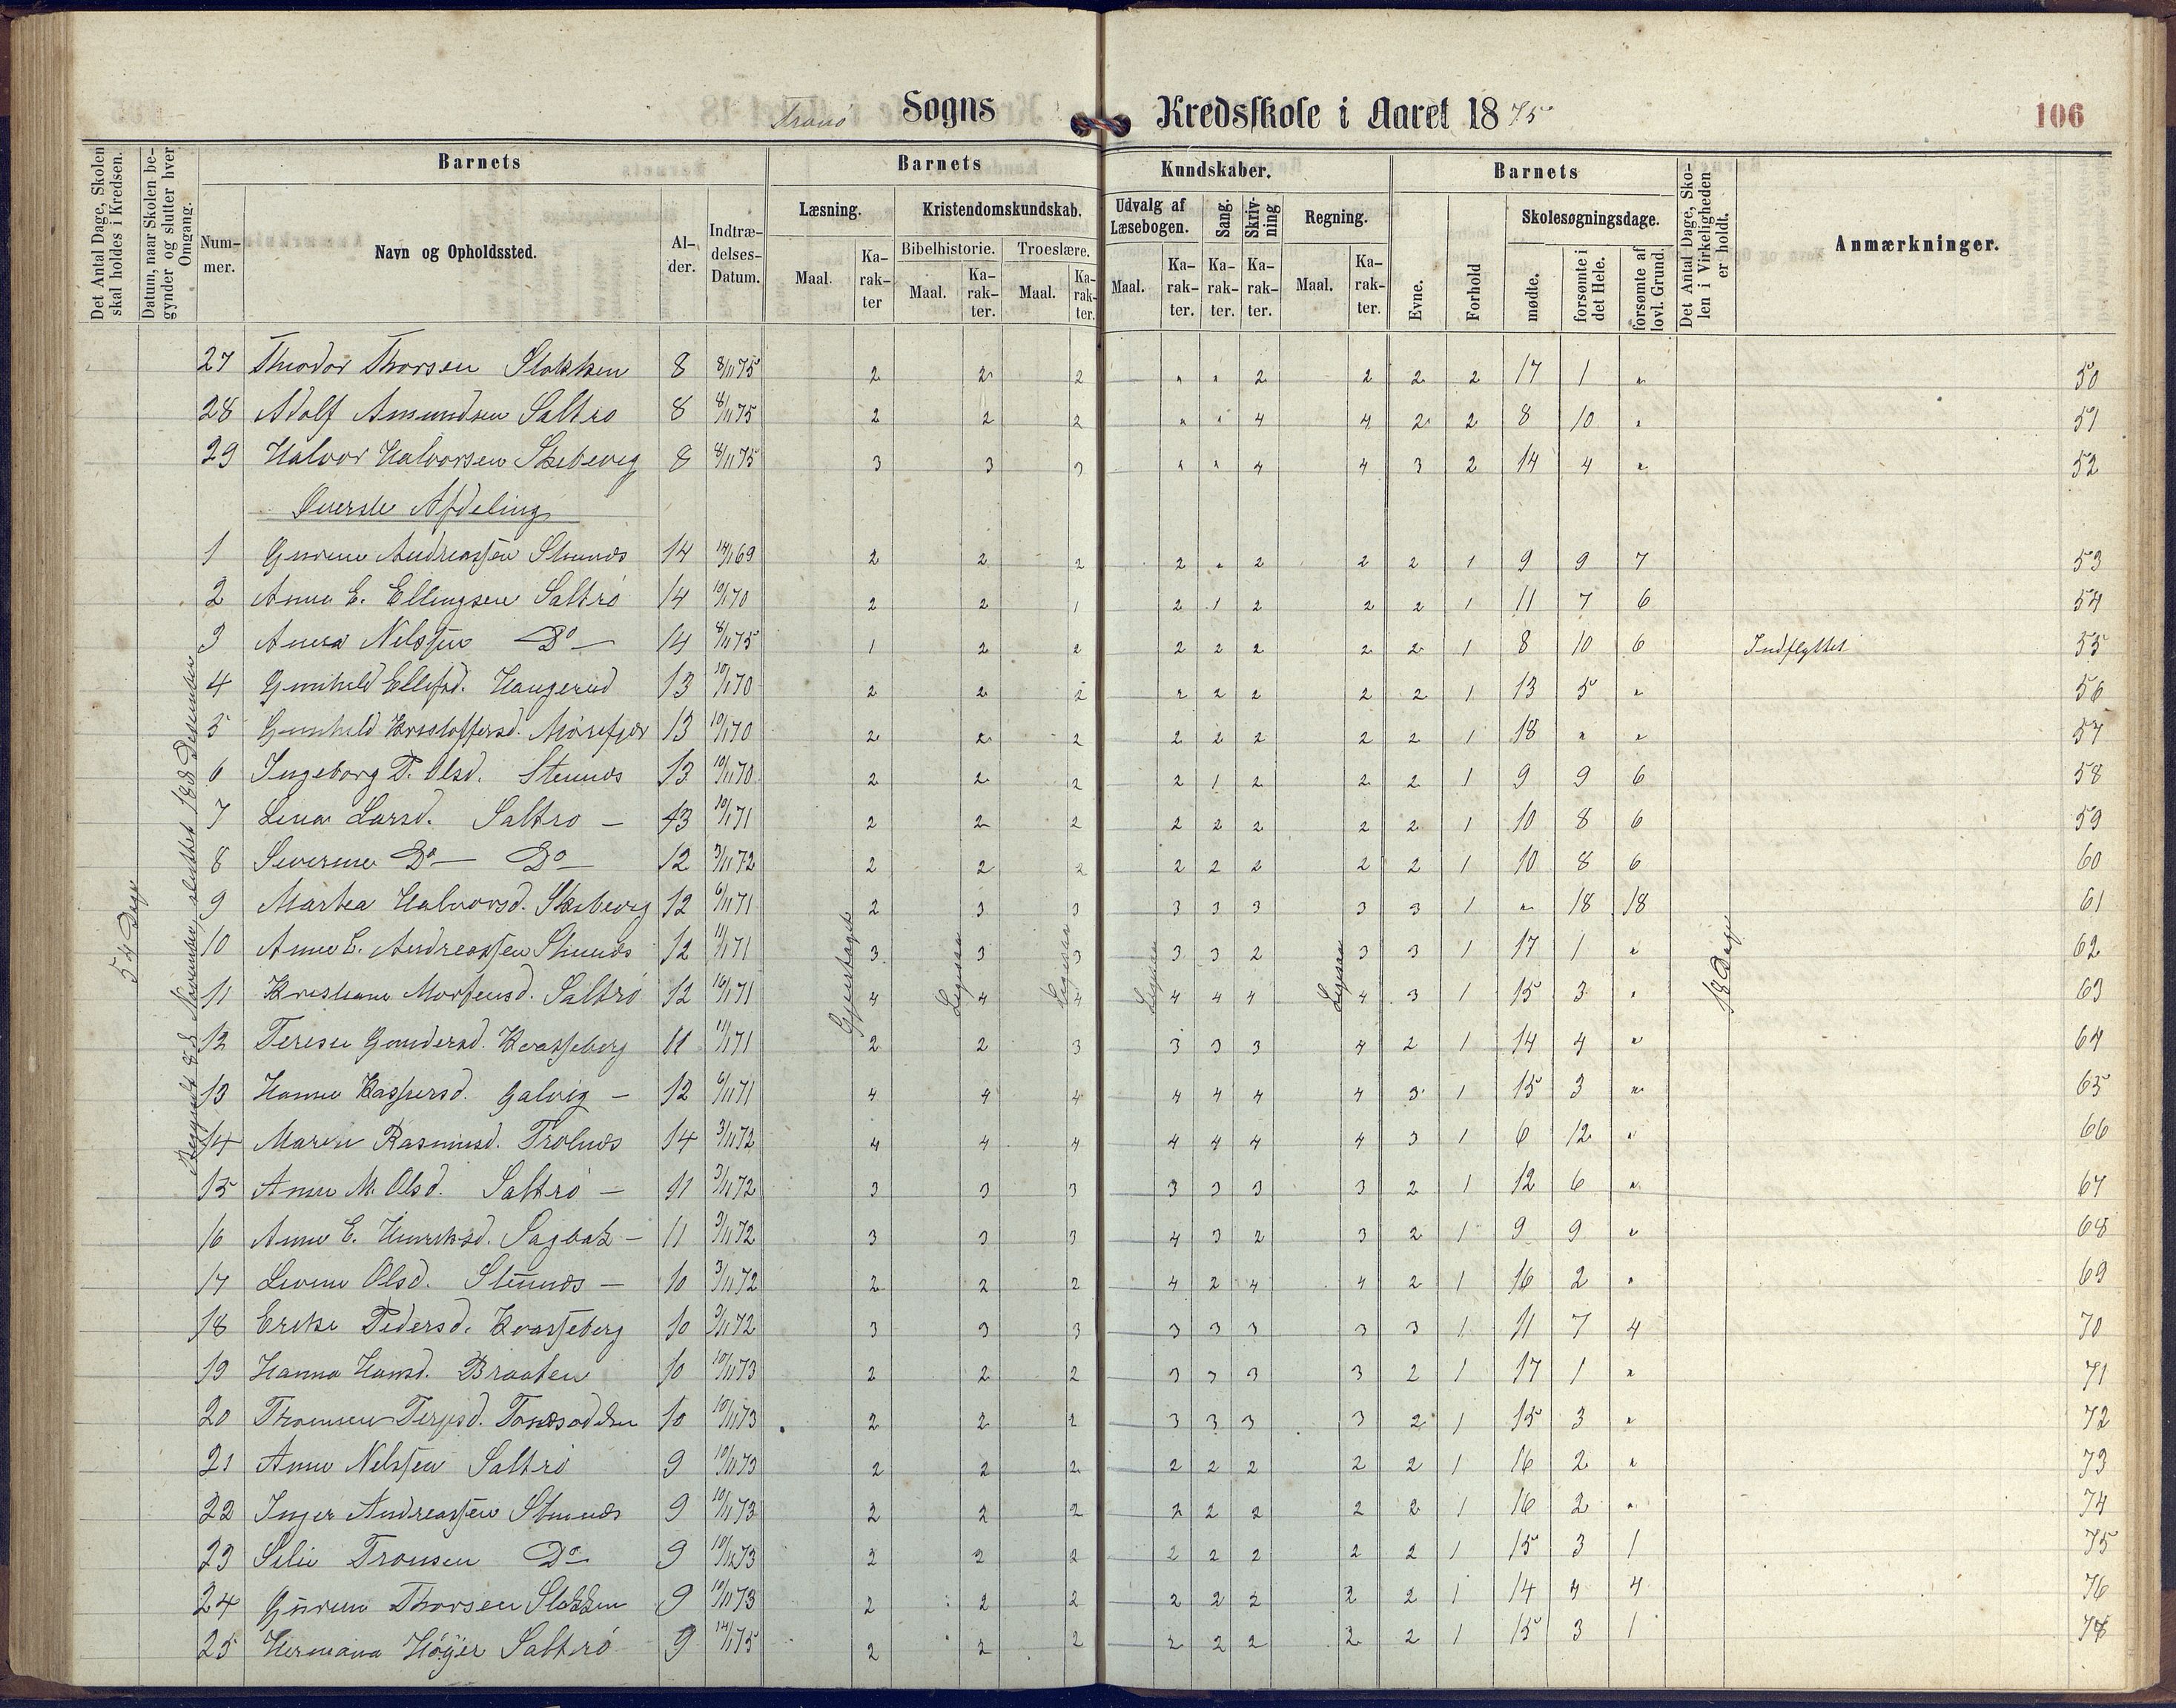 Sogns Kredsskole i Aaret 1875 106
Det Antal Dage, Skolen skal holdes i Kredsen.
Datum, naar Skolen begynder og slutter hver Omgang.
Barnets Barnets Kundskaber. Barnets
Nummer. Navn og Opholdssted. Alder. Indtrædelses-Datum.
Læsning. Kristendomskundskab. Udvalg af Læsebogen. Sang. Skrivning Regning.
Bibelhistorie. Troeslære.
Maal. Karakter Maal. Karakter. Maal. Karakter. Maal. Karakter. Karakter. Karakter. Maal. Karakter.
Evne. Forhold Skolesøgningsdage. mødte. forsømte i det Hele. forsømte af lovl. Grund.
Det Antal Dage, Skolen i Virkeligheden er holdt.
Anmærkninger.
54 Dage
Begyndt d. 8 November, sluttet 18d December
Gjentaget
Ligesaa
Ligesaa
Ligesaa
Ligesaa
18 Dage
27 Theodor Thorsen Stokken 8 8/11 75 2 2 2 " " 2 2 2 2 17 1 " 50
28 Adolf Amundsen Saltrø 8 8/11 75 2 2 2 " " 4 4 2 2 8 10 " 51
29 Halvor Halvorsen Skibevig 8 8/11 75 3 3 3 " " 4 4 3 2 14 4 " 52
Øverste Afdeling
1 Andreassen 14 14/1 69 2 2 2 2 " 2 2 2 1 9 9 7 53
2 Anne E. Ellingsen Saltrø 14 10/1 70 2 2 1 2 1 2 2 2 1 11 7 6 54
3 Anna Nelssen Do — 14 8/11 75 1 2 2 2 2 2 2 2 1 8 10 6 Indflyttet 55
4 Gunhild Ellefsd. Haugerud 13 10/1 70 2 2 2 2 2 2 2 2 1 13 5 " 56
5 Gunhild Kristoffersd. Mørefjær 13 10/1 70 2 2 2 2 2 2 2 2 1 18 " " 57
6 Ingeborg T. Olsd. 13 10/11 70 2 2 2 2 1 2 2 2 1 9 9 6 58
7 Lena Larsd. Saltrø — 13 10/1 71 2 2 2 2 2 2 2 2 1 10 8 6 59
8 Severine Do — Do — 12 3/11 72 2 2 2 2 2 2 2 2 1 10 8 6 60
9 Martea Halvorsd. Skibevig 12 6/11 71 2 3 3 3 3 3 3 3 1 " 18 18 61
10 Anne E. Andreassen 12 11/1 71 3 3 3 3 3 2 3 3 1 17 1 " 62
11 Kristiane Mortensd. Saltrø 12 16/1 71 4 4 4 4 4 4 4 3 1 15 3 " 63
12 Terese Gundersd. Kvasseberg 11 11/1 71 2 2 3 3 3 3 4 2 1 14 4 " 64
13 Hanne Kaspersd. Galvig — 12 6/11 71 4 4 4 4 4 4 4 3 1 15 3 " 65
14 Maren Rasmusd. Trolnæs 14 3/11 72 4 4 4 4 4 4 4 3 1 6 12 " 66
15 Anne M. Olsd. Saltrø — 11 3/11 72 3 3 3 3 3 3 3 2 1 12 6 " 67
16 Anne E. Henriksd. Sagbak — 11 3/11 72 3 3 3 4 3 2 3 2 1 9 9 " 68
17 Olsd. — 10 3/11 72 2 2 2 4 2 4 4 2 1 16 2 " 69
18 Erikke Pedersd. Kvasseberg 10 3/11 72 3 3 3 3 3 3 3 3 1 11 7 4 70
19 Hanna Hansd. Braaten 10 10/11 73 2 2 2 3 3 3 3 2 1 17 1 " 71
20 Terjesd. 10 10/11 73 2 2 2 3 3 3 3 2 1 15 3 " 72
21 Anne Nelssen Saltrø 9 10/11 73 2 2 2 2 2 2 2 2 1 16 2 " 73
22 Inger Andreassen 9 10/11 73 2 2 2 2 2 2 2 2 1 16 2 " 74
23 Silie Tronsen Do — 9 10/11 73 2 2 2 2 2 2 2 2 1 15 3 1 75
24 Thorsen Stokken 9 10/11 73 2 2 2 2 2 2 2 2 1 14 4 4 76
25 Hermana Høyer Saltrø 9 14/1 75 2 2 2 2 2 2 2 2 1 15 3 1 77